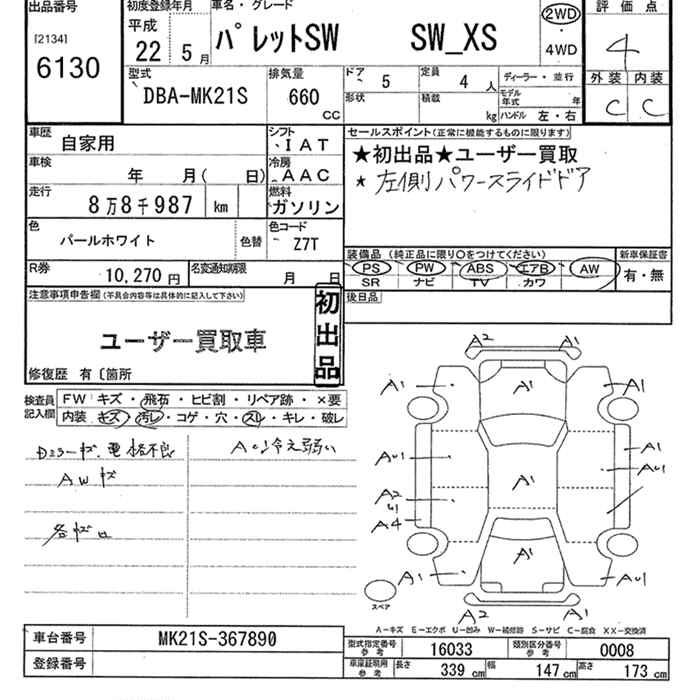 出品番号
[2134]
6130
初度登録年月
平成
22 5月
車名・グレード
パレットSW SW_XS
2WD
・
4WD
評価点
4
外装 内装
C C
型式
DBA-MK21S
排気量
660
CC
ドア 5
定員 4 人
形状
積載 kg
ディーラー・並行
モデル年式 年
ハンドル 左・右
車歴
自家用
シフト
IAT
車検
年 月( 日)
冷房
AAC
走行
8万8千987 km
燃料
ガソリン
色
パールホワイト
色替
色コード
Z7T
R券
10,270円
名変通知期限
月 日
セールスポイント(正常に機能するものに限ります)
★初出品★ユーザー買取
★ 左側パワースライドドア
装備品(純正品に限り○をつけてください)
PS PW ABS エアB AW
SR ナビ TV カワ
新車保証書
有・無
後日品
注意事項申告欄(不具合内容等は具体的に記入して下さい)
ユーザー買取車
初出品
修復歴 有〔箇所
検査員
記入欄
FW キズ・飛石・ヒビ割・リペア跡・×要
内装 キズ・汚レ・コゲ・穴・スレ・キレ・破レ
Dミラーキズ、電格不良
AWキズ
各キズ凹
A/C冷え弱い
A2
A1 A1
A1
AU1
A1
AU1
A1
A2
U1
A4
A1
A1 AU1
A2 A2
スペア
A-キズ E-エクボ U-凹み W-補修跡 S-サビ C-腐食 XX-交換済
車台番号
MK21S-367890
登録番号
型式指定番号
参考
16033
類別区分番号
参考
0008
車庫証明用
参考
長さ 339 cm
幅 147 cm
高さ 173 cm